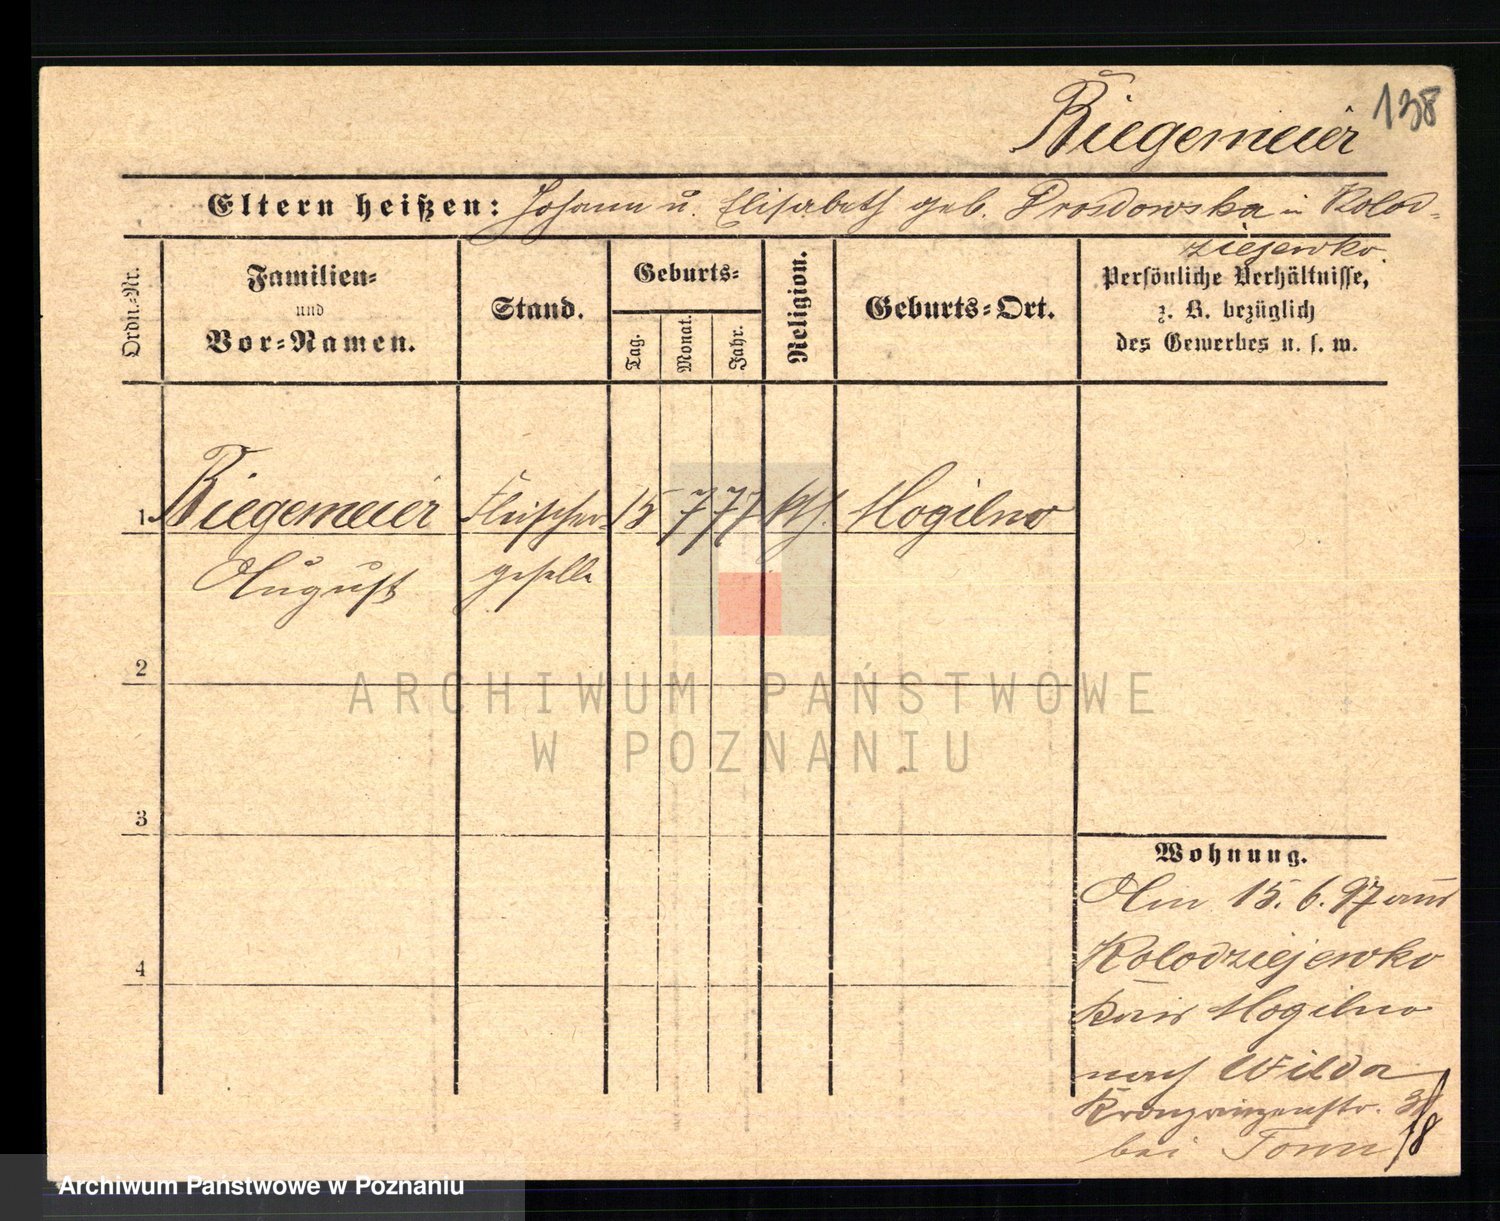 138
Riegemeier
Eltern heißen: Johann u. Elisabeth geb. Drosdowska in Kolod-
ziejewko.
Ordn.-Nr.
Familien-
und
Vor-Namen.
Stand.
Geburts-
Tag.
Monat.
Jahr.
Religion.
Geburts-Ort.
Persönliche Verhältnisse,
z. B. bezüglich
des Gewerbes u. s. w.
1 Riegemeier Fleischer- 15 7 77 kth. Mogilno
August geselle
2
3
4
Wohnung.
Am 15. 6. 97 aus
Kolodziejewko
Kreis Mogilno
nach Wilda
Kronprinzenstr.
bei
ARCHIWUM PAŃSTWOWE
W POZNANIU
Archiwum Państwowe w Poznaniu